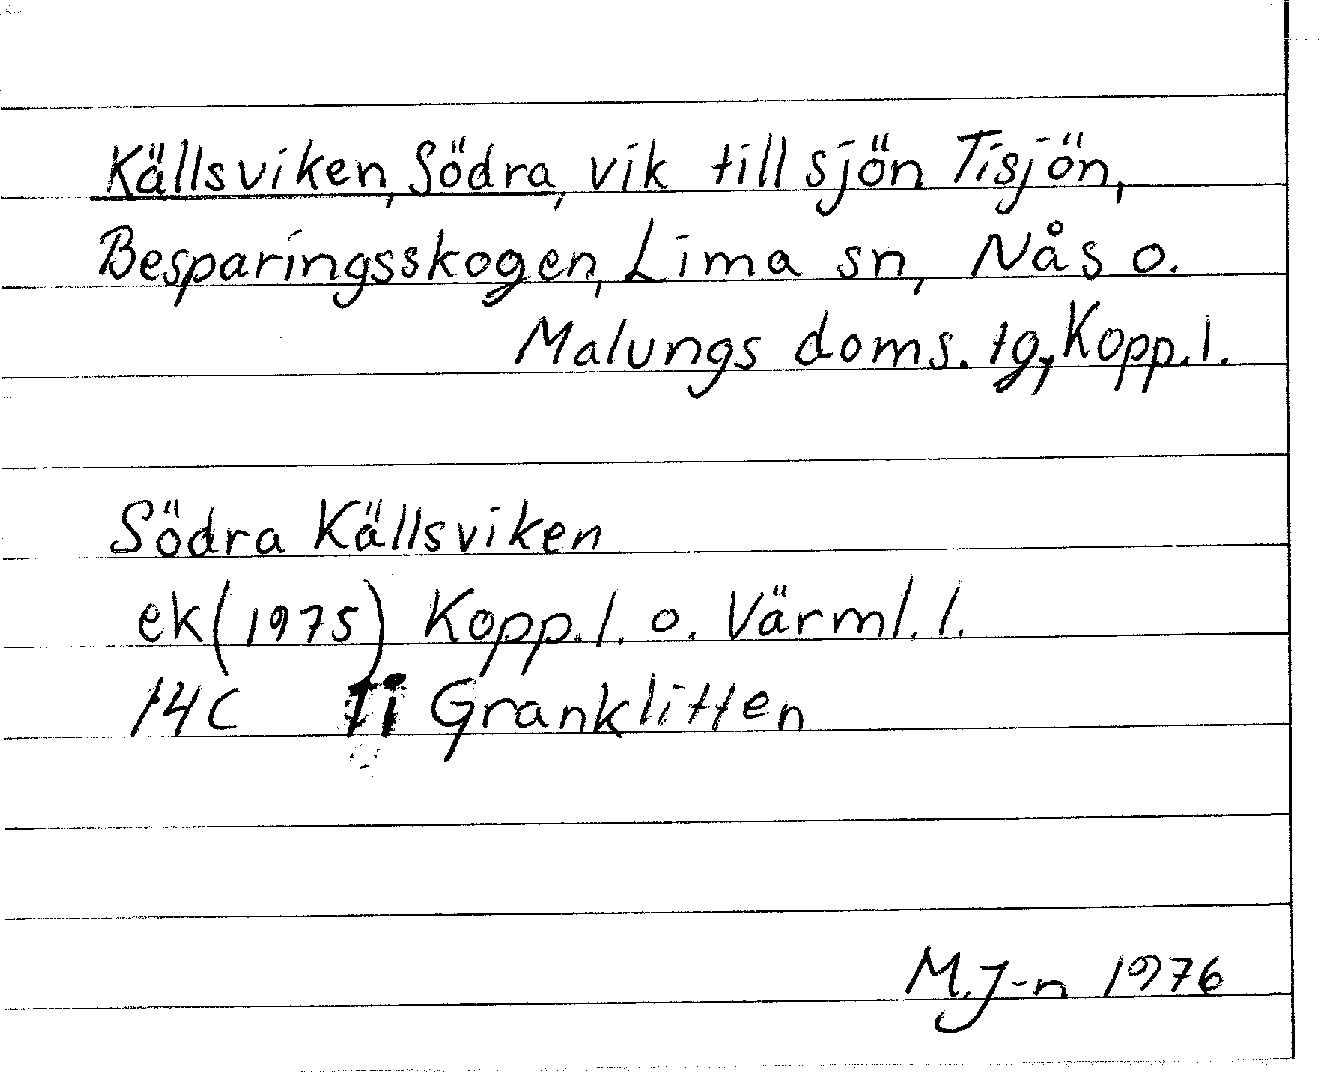 Källsviken, Södra, vik till sjön Tisjön,
Besparingsskogen, Lima sn, Nås o.
Malungs doms. tg, Kopp. l.
Södra Källsviken
ek (1975) Kopp. l. o. Värml. l.
14C Ti Granklitten
M. J-n 1976